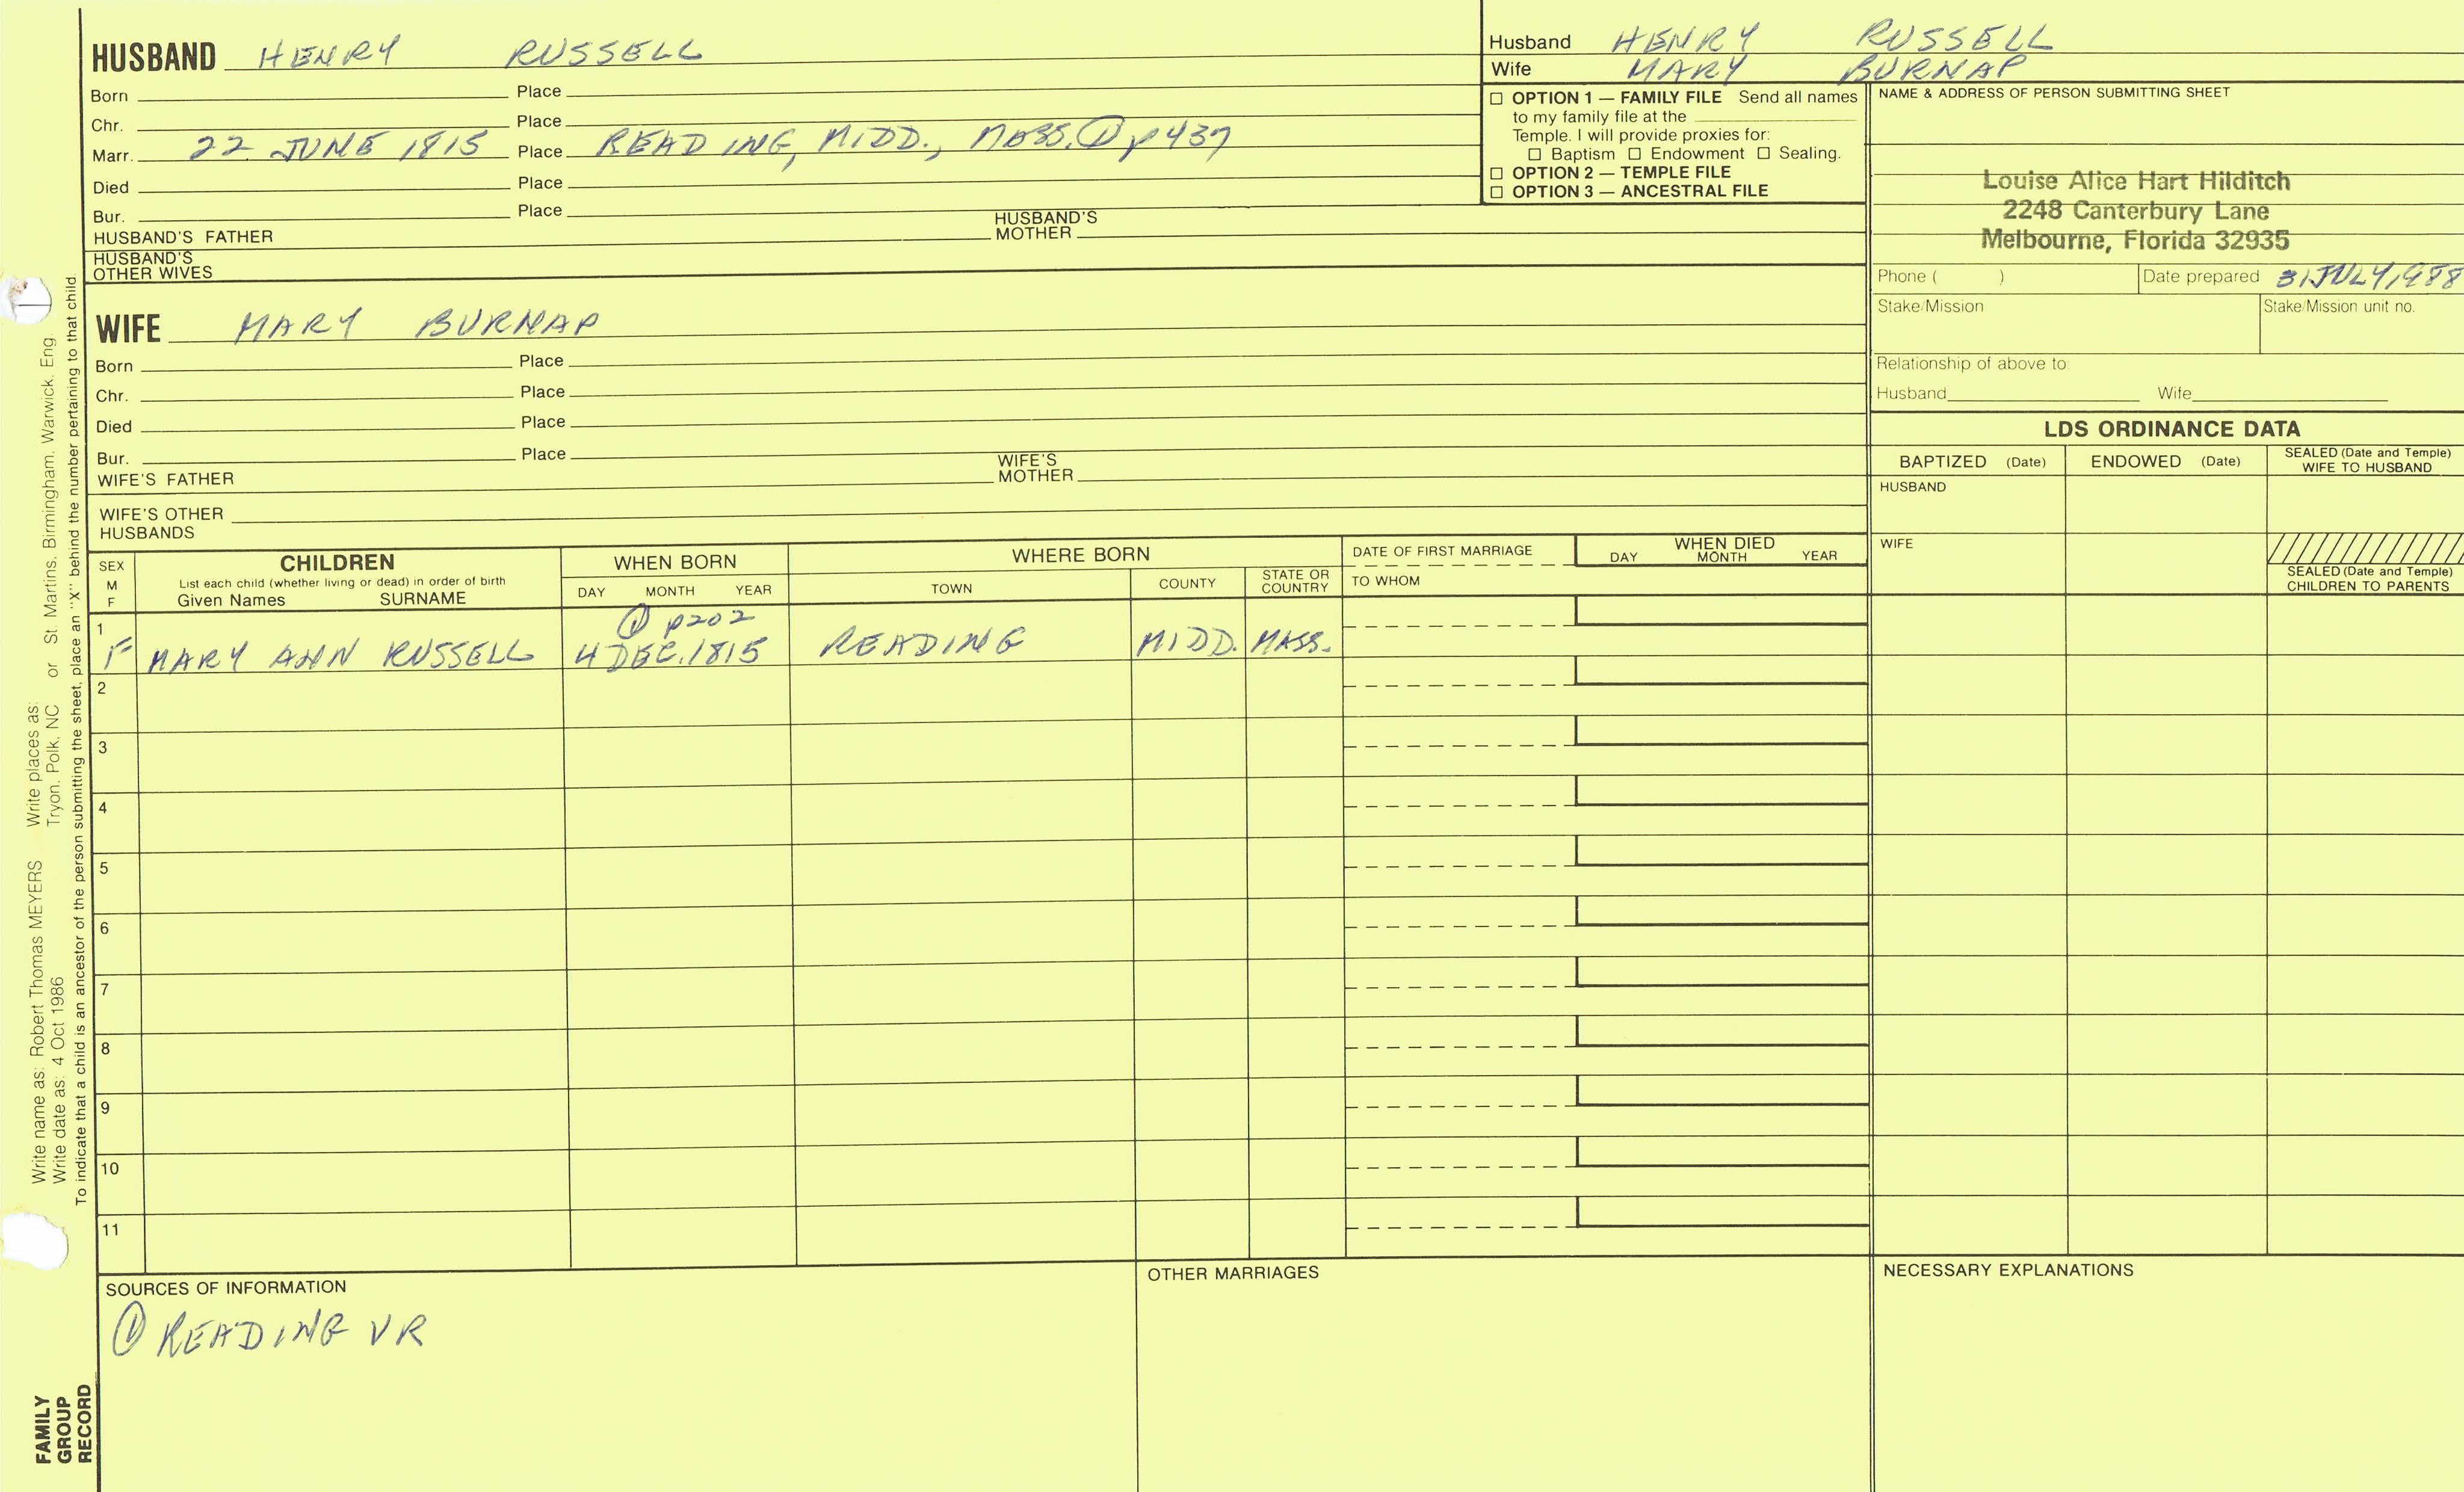 HUSBAND HENRY RUSSELL
Born Place
Chr. Place
Marr. 22 JUNE 1815 Place READING, MIDD., MASS. ① p437
Died Place
Bur. Place
HUSBAND'S FATHER HUSBAND'S MOTHER
HUSBAND'S OTHER WIVES
WIFE MARY BURNAP
Born Place
Chr. Place
Died Place
Bur. Place
WIFE'S FATHER WIFE'S MOTHER
WIFE'S OTHER HUSBANDS
Husband HENRY RUSSELL
Wife MARY BURNAP
☐ OPTION 1 — FAMILY FILE Send all names
to my family file at the
Temple. I will provide proxies for:
☐ Baptism ☐ Endowment ☐ Sealing.
☐ OPTION 2 — TEMPLE FILE
☐ OPTION 3 — ANCESTRAL FILE
NAME & ADDRESS OF PERSON SUBMITTING SHEET
Louise Alice Hart Hilditch
2248 Canterbury Lane
Melbourne, Florida 32935
Phone ( ) Date prepared 31 JULY 1988
Stake/Mission Stake/Mission unit no.
Relationship of above to:
Husband Wife
LDS ORDINANCE DATA
BAPTIZED (Date) ENDOWED (Date) SEALED (Date and Temple) WIFE TO HUSBAND
HUSBAND
WIFE
SEALED (Date and Temple)
CHILDREN TO PARENTS
SEX M F
CHILDREN
List each child (whether living or dead) in order of birth
Given Names SURNAME
WHEN BORN
DAY MONTH YEAR
WHERE BORN
TOWN COUNTY STATE OR COUNTRY
DATE OF FIRST MARRIAGE
TO WHOM
WHEN DIED
DAY MONTH YEAR
① p202
1 F MARY ANN RUSSELL 4 DEC. 1815 READING MIDD. MASS.
2
3
4
5
6
7
8
9
10
11
SOURCES OF INFORMATION
① READING VR
OTHER MARRIAGES
NECESSARY EXPLANATIONS
Write name as: Robert Thomas MEYERS Write places as:
Write date as: 4 Oct 1986 Tryon, Polk, NC or St. Martins, Birmingham, Warwick, Eng.
To indicate that a child is an ancestor of the person submitting the sheet, place an "X" behind the number pertaining to that child.
FAMILY
GROUP
RECORD